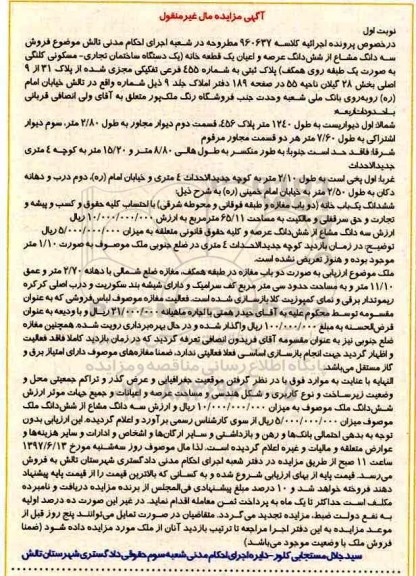 آگهی مزایده مال غیرمنقول
نوبت اول
درخصوص پرونده اجرائیه کلاسه ۹۶۰۶۳۷ مطروحه در شعبه اجرای احکام مدنی تالش موضوع فروش
سه دانگ مشاع از شش‌دانگ عرصه و اعیان یک قطعه خانه (یک دستگاه ساختمان تجاری- مسکونی کلنگی
به صورت یک طبقه روی همکف) پلاک ثبتی به شماره ۴۵۵ فرعی تفکیکی مجزی شده از پلاک ۳۱ از ۹
اصلی بخش ۲۸ گیلان ناحیه ۵۵ در صفحه ۱۸۹ دفتر املاک جلد ۹ ذیل شماره واقع در تالش خیابان امام
(ره) روبه‌روی بانک ملی شعبه وحدت جنب فروشگاه رنگ ملک‌پور متعلق به آقای ولی انصافی قربانی
با حدودات اربعه
شمالا: اول دیواریست به طول ۱۲/۴۰ متر پلاک ۴۵۶، قسمت دوم دیوار مجاور به طول ۲/۸۰ متر، سوم دیوار
اشتراکی به طول ۷/۶۰ متر هر دو قسمت مجاور مرقوم
شرقا: فاقد حد است جنوبا: به طور منکسر به طول هائی ۸/۸۰ متر و ۱۵/۲۰ متر به کوچه ۴ متری
جدیدالاحداث
غربا: اول پخی است به طول ۲/۱۰ متر به کوچه جدیدالاحداث ۴ متری و خیابان امام (ره)، دوم درب و دهانه
دکان به طول ۲/۵۰ متر به خیابان امام خمینی (ره) به شرح ذیل:
ششدانگ یک‌باب خانه (دو باب مغازه و طبقه فوقانی و محوطه شرقی) با احتساب کلیه حقوق و کسب و پیشه و
تجارت و حق سرقفلی و مالکیت به مساحت ۶۵/۱۱ مترمربع به ارزش ۱۰/۰۰۰/۰۰۰/۰۰۰ ریال و
ارزش سه دانگ مشاع از شش‌دانگ عرصه و کلیه حقوق قانونی متعلقه به میزان ۵/۰۰۰/۰۰۰/۰۰۰ ریال
توضیح: در زمان بازدید کوچه جدیدالاحداث ۴ متری در ضلع جنوبی ملک موصوف به صورت ۱/۱۰ متر
موجود بوده و هنوز تعریض نشده است.
ملک موضوع ارزیابی به صورت دو باب مغازه در طبقه همکف، مغازه ضلع شمالی با دهانه ۲/۷۰ متر و عمق
۱۱/۱۰ متر و به مساحت حدود سی متر مربع کف سرامیک و دارای شیشه بند سکوریت و درب اصلی کرکره
ریموتدار برقی و نمای کمپوزیت کلا بازسازی شده است. فعالیت مغازه موصوف لباس‌فروشی که به عنوان
مقسومه توسط محکوم علیه به آقای حیدر همتی با اجاره ماهیانه ۲۱/۰۰۰/۰۰۰ ریال و با ودیعه به عنوان
قرض‌الحسنه به مبلغ ۱۰۰/۰۰۰/۰۰۰ ریال واگذار شده و در حال بهره‌برداری رویت شده، همچنین مغازه
ضلع جنوبی نیز به عنوان مقسومه آقای فریدون انصافی تعرفه گردید که در زمان بازدید کاملا فاقد فعالیت
و اظهار گردید جهت انجام بازسازی اساسی فعلا فعالیتی ندارد، ضمنا مغازه‌های موصوف دارای امتیاز برق و
گاز مستقل می‌باشد.
النهایه با عنایت به موارد فوق با در نظر گرفتن موقعیت جغرافیایی و عرض گذر و تراکم جمعیتی محل و
وضعیت زیرساخت و نوع کاربری و شکل هندسی و مساحت عرصه و اعیانات و جمیع جهات موثر ارزش
شش‌دانگ ملک موصوف به میزان ۱۰/۰۰۰/۰۰۰/۰۰۰ ریال و ارزش سه دانگ مشاع از شش‌دانگ ملک
موصوف میزان ۵/۰۰۰/۰۰۰/۰۰۰ ریال از سوی کارشناس رسمی برآورد و اعلام گردیده، این ارزیابی بدون
توجه به بدهی احتمالی بانک‌ها و رهن و بازداشتی و سایر ارگان‌ها و اشخاص و ادارات و سایر هزینه‌ها و
عوارض متعلقه و مالیات و غیره اعلام گردیده است. لذا مال موصوف روز سه‌شنبه مورخ ۱۳۹۷/۶/۱۳
ساعت ۱۱ صبح از طریق مزایده در دفتر شعبه اجرای احکام مدنی دادگستری شهرستان تالش به فروش
می‌رسد. قیمت پایه از بهای ارزیابی شروع شده و به کسانی که بالاترین قیمت را از قیمت پایه پیشنهاد
دهند فروخته خواهد شد و ۱۰ درصد مبلغ پیشنهادی فی‌المجلس از برنده مزایده دریافت و نامبرده
مکلف است حداکثر تا یک ماه به پرداخت ثمن معامله اقدام نماید. در غیر این صورت ده درصد اولیه
به نفع دولت ضبط، مزایده تجدید می‌گردد. متقاضیان در صورت تمایل می‌توانند پنج روز قبل از
موعد مزایده به این دفتر اجرا مراجعه تا ترتیب بازدید آنان از ملک مورد مزایده داده شود (ضمنا
فروش ملک با وضعیت موجود می‌باشد)
سید جلال مستجابی کلور - دایره اجرای احکام مدنی شعبه سوم حقوقی دادگستری شهرستان تالش